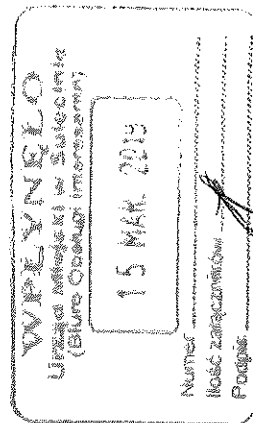 WPŁYNĘŁO
Urząd Miejski w Sulęcinie
(Biuro Obsługi Interesanta)
15 MAR. 2019
Numer
Ilość załączników
Podpis